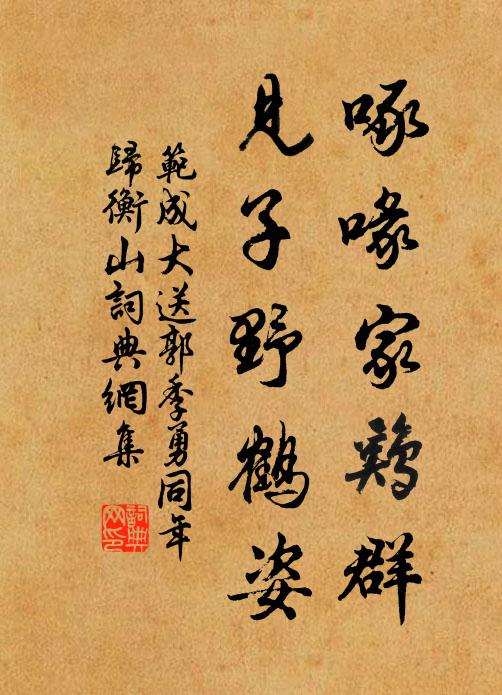 啄喙家鷄群
見子野鶴姿
範成大送郭季勇同年
歸衡山詞典網集
詞典網印